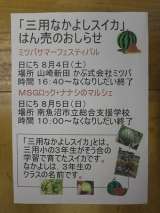 「三用なかよしスイカ」
はん売のおしらせ
ミツバサマーフェスティバル
日にち 8月4日(土)
場所 山崎新田 かぶ式会社ミツバ
時間 16:00～なくなりしだい終了
MSGロック・ナナシのマルシェ
日にち 8月5日(日)
場所 南魚沼市立総合支援学校
時間 10:40～なくなりしだい終了
「三用なかよしスイカ」とは、
三用小の3年生がそう合の
学習で育てたスイカです。
なかよしは 3年生の
クラスの名前です。